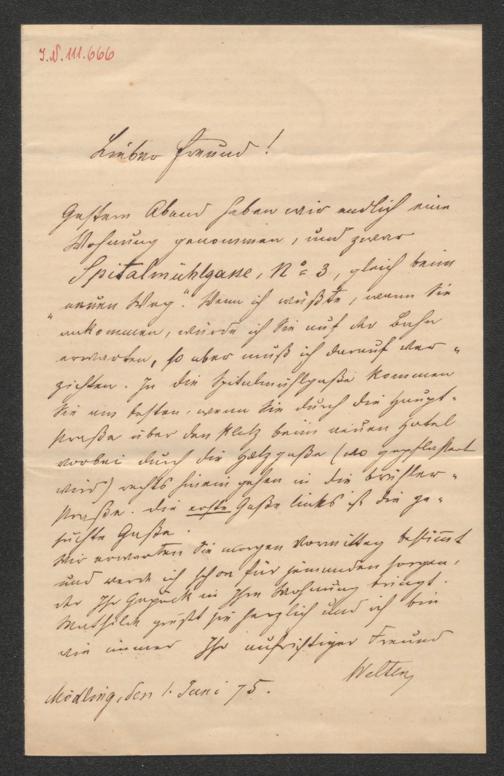 J.N. 111.666
Lieber Freund!
Gestern Abend haben wir endlich eine
Wohnung genommen, und zwar
Spitalmühlgasse, No 3, gleich beim
"neuen Weg". Wenn ich wüßte, wann Sie
ankommen, würde ich Sie auf der Bahn
erwarten, so aber muß ich darauf ver-
zichten. In die Spitalmühlgaße kommen
Sie am besten, wenn Sie durch die Haupt-
straße über den Platz beim neuen Hotel
vorbei durch die (wo gepflastert
wird) rechts hinein gehen in die Brühler-
straße. Die erste Gaße links ist die ge-
suchte Gaße.
Wir erwarten Sie morgen Vormittag bestimmt
und werde ich schon für jemanden sorgen,
der Ihr Gepäck in Ihre Wohnung bringt.
Mathilde grüßt Sie herzlich und ich bin
wie immer Ihr aufrichtiger Freund
Welten
Mödling, den 1. Juni 75.